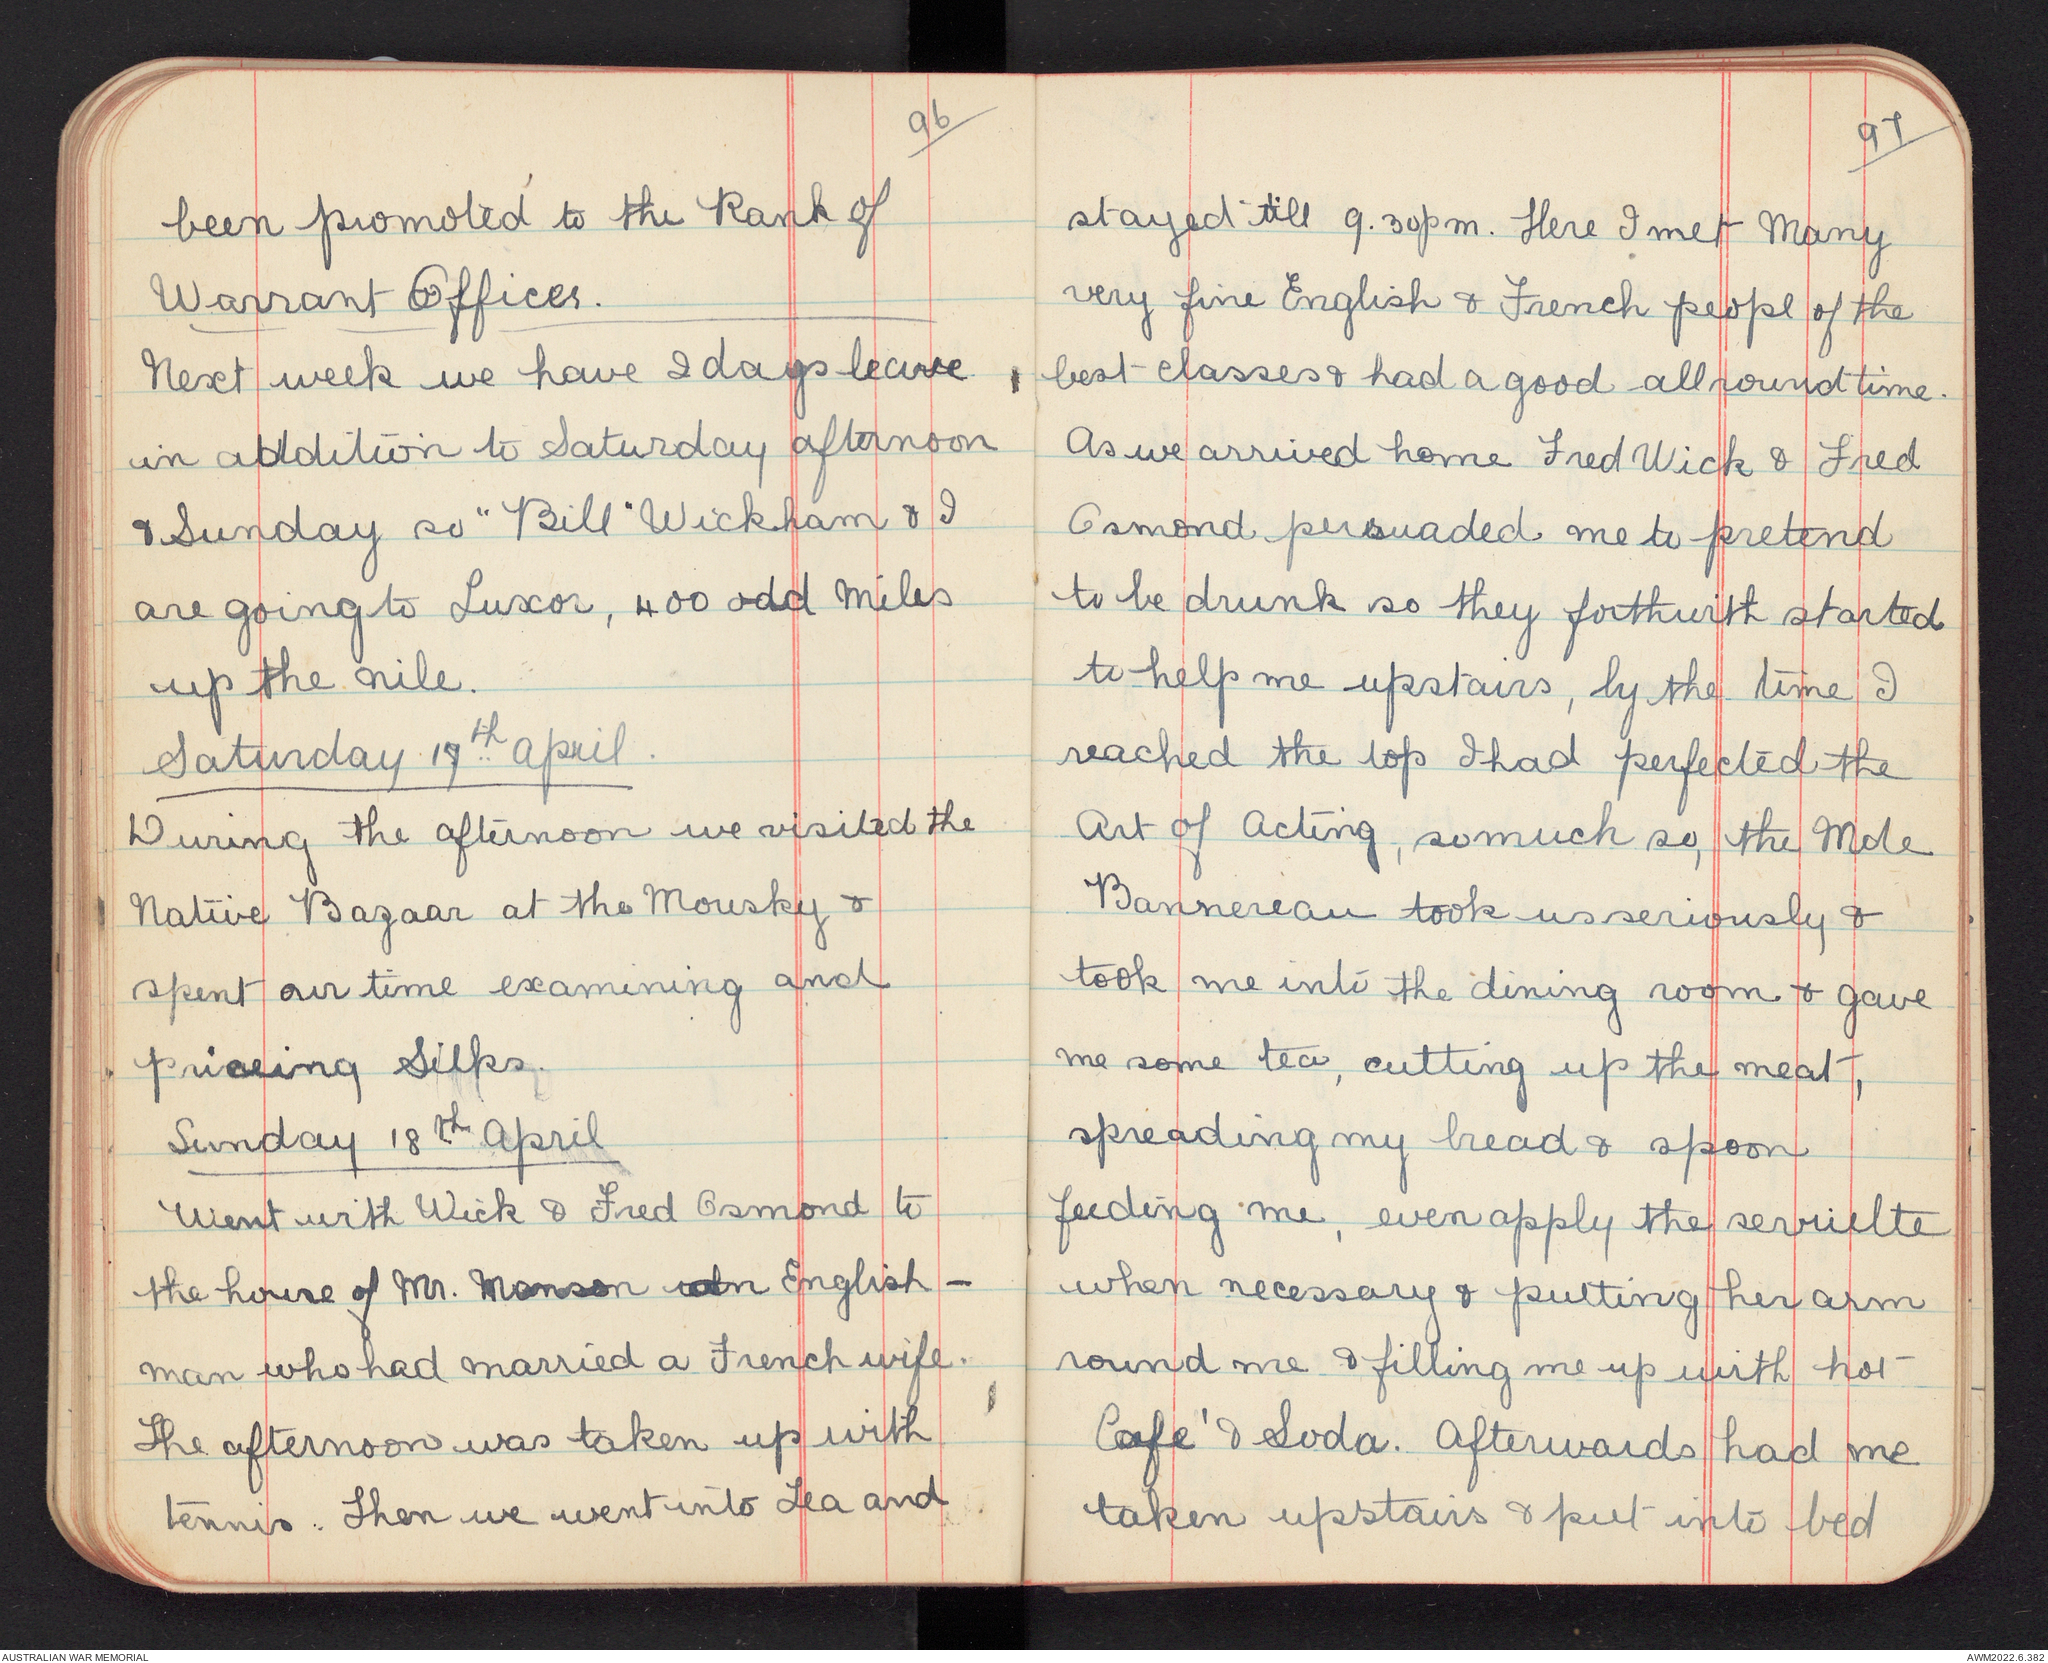 96
been promoted to the Rank of
Warrant Officer.
Next week we have 2 days leave
in addition to Saturday afternoon
& Sunday so "Bill" Wickham & I
are going to Luxor, 400 odd miles
up the nile.
Saturday 17th April.
During the afternoon we visited the
Native Bazaar at the Mousky &
spent our time examining and
priceing Silks.
Sunday 18th April
Went with Wick & Fred Osmond to
the house of Mr. Monson an English-
man who had married a French wife.
The afternoon was taken up with
tennis. Then we went into Tea and
97
stayed till 9.30pm. Here I met Many
very fine English & French peopl of the
best classes & had a good all round time.
As we arrived home Fred Wick & Fred
Osmond persuaded me to pretend
to be drunk so they forthwith started
to help me upstairs, by the time I
reached the top I had perfected the
Art of Acting, so much so, the Mdle
Bannereau took us seriously &
took me into the dining room & gave
me some tea, cutting up the meat,
spreading my bread & spoon
feeding me, even apply the serviette
when necessary & putting her arm
round me & filling me up with hot
Cafe' & Soda. Afterwards had me
taken upstairs & put into bed
AUSTRALIAN WAR MEMORIAL
AWM2022.6.382